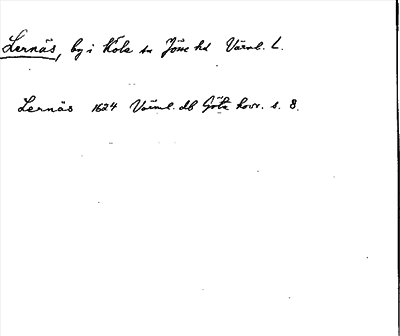 Lernäs, by i Köla sn Jösse hd Värml. L.
Lernäs 1624 Värml. db Göta hovr. s. 8.